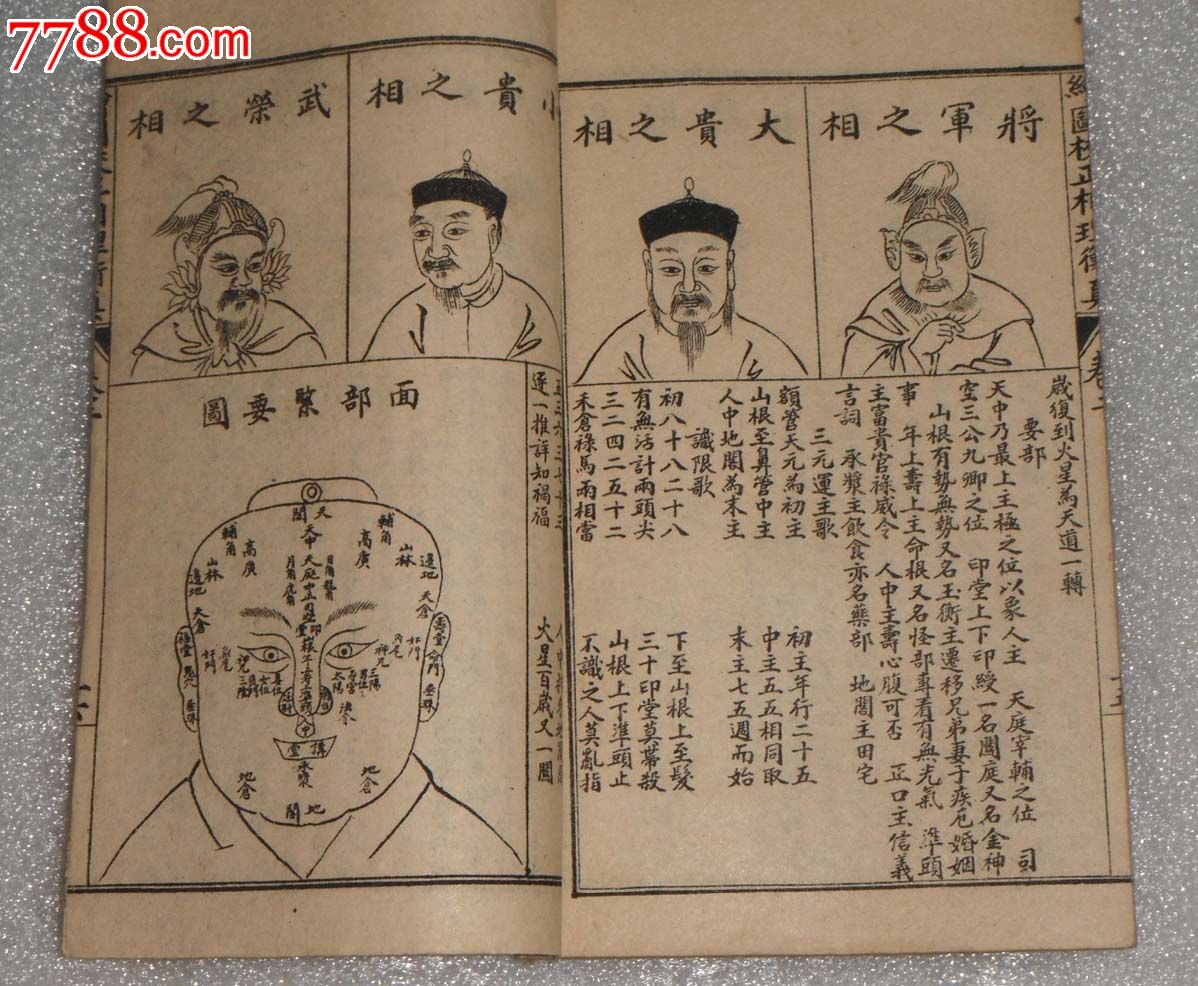 7788.com
將軍之相
大貴之相
歲復到火星為天道一轉
要部
天中乃最上主極之位以象人主　天庭宰輔之位　司
空三公九卿之位　印堂上下印綬一名闕庭又名金神
山根有勢無勢又名玉衡主遷移兄弟妻子疾厄婚姻
事　年上壽上主命根又名怪部專看有無光氣　準頭
主富貴官祿威令　人中主壽心腹可否　正口主信義
言詞　承漿主飲食亦名藥部　地閣主田宅
三元運主歌
額管天元為初主　初主年行二十五
山根至鼻管中主　中主五五相同取
人中地閣為末主　末主七五週而始
識限歌
初八十八二十八　下至山根上至髮
有無活計兩頭尖　三十印堂莫帶殺
三二四二五十二　山根上下準頭止
禾倉祿馬兩相當　不識之人莫亂指
小貴之相
武榮之相
逐一推詳知禍福　火星百歲又一關
面部緊要圖
天閣
天中
天庭
輔角
輔角
高廣
高廣
日角龍角
月角虎角
山林
山林
邊地
邊地
天倉
天倉
壽堂
命門
垂珠
垂珠
奸門
魚尾
神光
三陽
太陽
法令
三陰
承漿
地倉
地倉
地閣